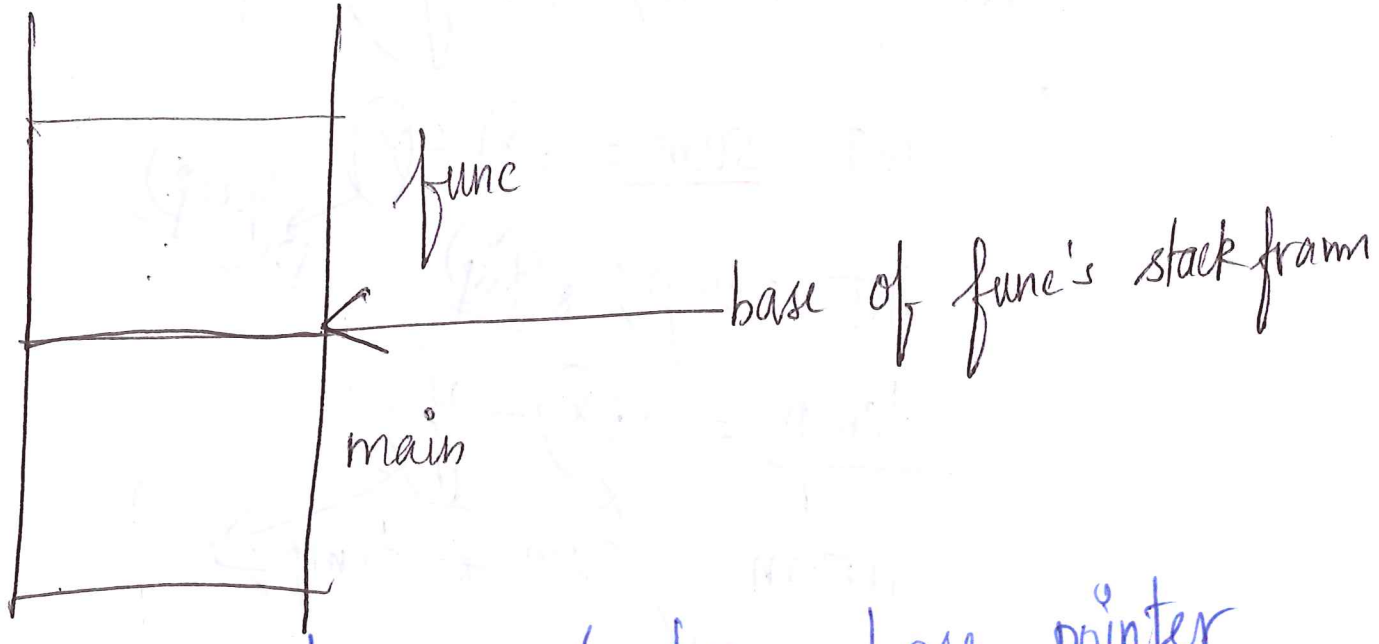 func
base of func's stack fram
main
base pointer